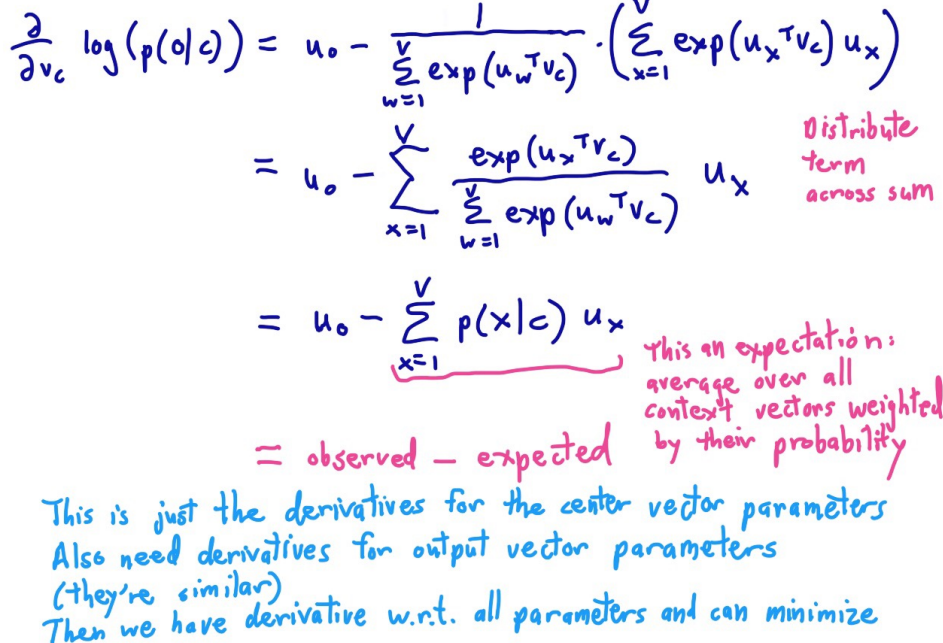 ∂/∂v_c log(p(o|c)) = u_o - 1/(∑_{w=1}^{V} exp(u_w^T v_c)) · (∑_{x=1}^{V} exp(u_x^T v_c) u_x)
= u_o - ∑_{x=1}^{V} exp(u_x^T v_c)/(∑_{w=1}^{V} exp(u_w^T v_c)) u_x
Distribute
term
across sum
= u_o - ∑_{x=1}^{V} p(x|c) u_x
This an expectation:
average over all
context vectors weighted
by their probability
= observed - expected
This is just the derivatives for the center vector parameters
Also need derivatives for output vector parameters
(they're similar)
Then we have derivative w.r.t. all parameters and can minimize